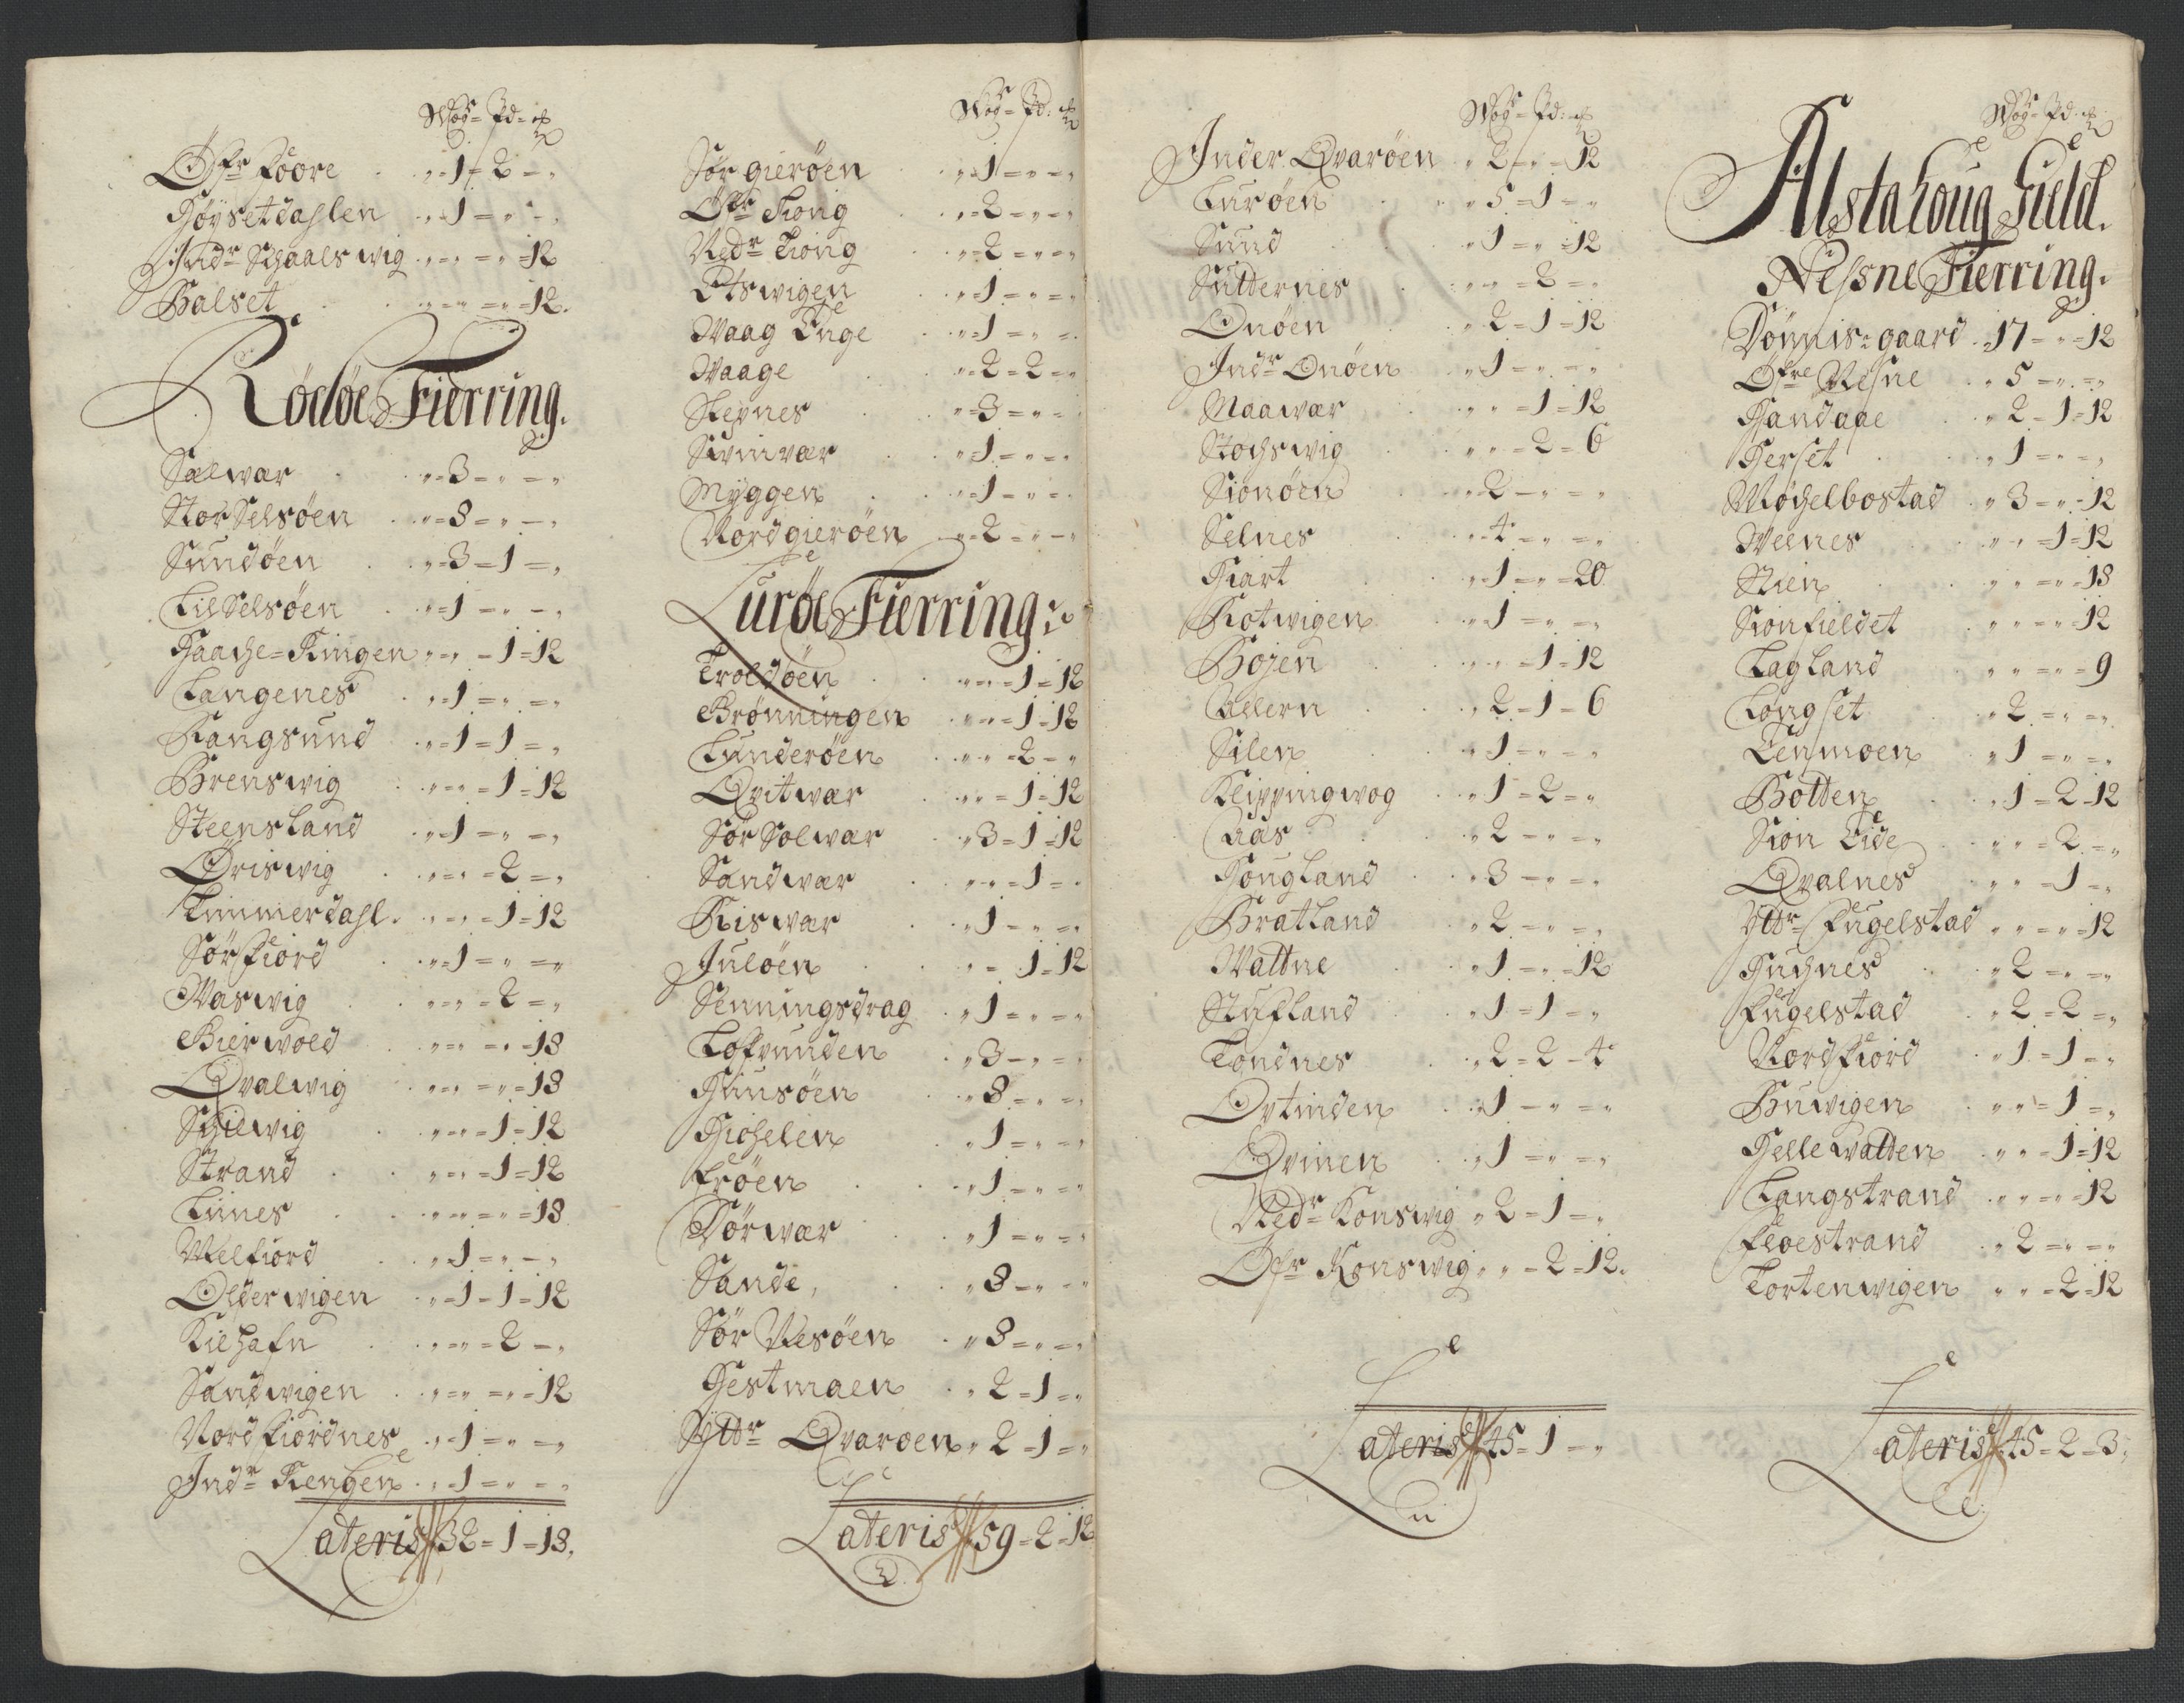 Wog = Pd = ℔
Øfr Foore „ 1 = 2 = „
Høÿsetdahlen „ 1 = „ = „
Indr Schaalswig „ = „ = „ = 12
Halset „ = „ = „ = 12.
Rödöe Fierring.
Sælwær „ = 3 = „ = „
Stor Selsöen „ = 8 = „ = „
Sundöen „ = 3 = 1 = „
Lill Selsöen „ = 1 = „ = „
Haache = Ringen „ = „ = 1 = 12
Langenes „ = 1 = „ = „
Rangsund „ = 1 = 1 = „
Brenswig „ = „ = 1 = 12
Steensland „ = 1 = „ = „
Øriswig „ = „ = 2 = „
Timmerdahl „ = „ = 1 = 12
Sörfiord „ = 1 = „ = „
Waswig „ = „ = 2 = „
Bierwold „ = „ = „ = 18
Qvalwig „ = „ = „ = 18
Schilwig „ = „ = 1 = 12
Strand „ = „ = 1 = 12
Tiines „ = „ = „ = 18
Melfiord „ 1 = „ = „
Olderwigen „ = 1 = 1 = 12
Kilhafn „ = „ = 2 = „
Sandwigen „ = „ = „ = 12
Nordfiordnes „ = 1 = „ = „
Indr Renhen „ 1 = „ = „
Lateris 32 = 1 = 18.
Wog = Pd: ℔
Sör gieröen „ = 1 = „ = „
Øfr Tiong „ = 2 = „ = „
Nedr Tiong „ = 2 = „ = „
Etswigen „ = 1 = „ = „
Waag Enge „ = 1 = „ = „
Waage „ = 2 = 2 = „
Stepnes „ = 3 = „ = „
Svinvær „ = 1 = „ = „
Myggen „ = 1 = „ = „
Nordgieröen „ = 2 = „ = „
Luröe Fierring:
Troldöen „ = „ = 1 = 12
Brønningen „ = „ = 1 = 12
Lunderöen „ = „ = 2 = „
Qvitwær „ = „ = 1 = 12
Sör Solwær „ 3 = 1 = 12
Sandwær „ = „ = 1 = „
Riswær „ 1 = „ = „
Juløen „ = 1 = 12
Senningsdrag „ 1 = „ = „
Lofvunden „ 3 = „ = „
Huusöen „ 8 = „ = „
Hichelen „ 1 = „ = „
Fröen „ 1 = „ = „
Dörwær „ 1 = „ = „
Sande „ 8 = „ = „
Sör Nesöen „ 8 = „ = „
Hestmaen „ 2 = 1 = „
Yttr Qvaroen „ 2 = 1 = „
Lateris 59 = 2 = 12
Wog = Pd: ℔
Inder Qvaröen „ 2 = „ = 12
Luröen „ 5 = 1 = „
Sund „ 1 = „ = 12
Suttternes „ „ = 2 = „
Onöen „ 2 = 1 = 12
Indr Onöen „ 1 = „ = „
Maawær „ „ = 1 = 12
Stochswig „ „ = 2 = 6
Sionöen „ 2 = „ = „
Selnes „ 4 = „ = „
Hiart „ 1 = „ = 20
Kotwigen „ 1 = „ = „
Bojen „ „ = 1 = 12
Aldern „ 2 = 1 = 6
Silen „ 1 = „ = „
Kleppingwog „ 1 = 2 = „
Aas „ 2 = „ = „
Hougland „ 3 = „ = „
Bratland „ 2 = „ = „
Wattne „ 1 = „ = 12
Stufland „ 1 = 1 = „
Tondnes „ 2 = 2 = 4
Ortinden „ 1 = „ = „
Qvinen „ 1 = „ = „
Nedr Konswig „ 2 = 1 = „
Øfr Konswig „ „ = 2 = 12.
Lateris 45 = 1 = „
Wog = Pd: ℔
Alstahoug Gield.
Nessne Fierring.
Dönnis = gaard 17 = „ = 12
Øfre Nesne „ 5 = „ = „
Handaae „ 2 = 1 = 12
Herset „ 1 = „ = „
Møchelbostad „ 3 = „ = 12
Weenes „ „ = 1 = 12
Stien „ „ = „ = 18
Sionfieldet „ „ = „ = 12
Lagland „ „ = „ = 9
Longset „ 2 = „ = „
Lenmoen „ 1 = „ = „
Botten „ 1 = 2 = 12
Sion Eide „ „ = 2 = „
Qvalnes „ „ = 1 = „
Yttr Fugelstad „ „ = „ = 12
Huchnes „ 2 = „ = „
Fugelstad „ 2 = 2 = „
Nordfiord „ 1 = 1 = „
Huwigen „ „ = 1 = „
Hellewatten „ „ = 1 = 12
Langstrand „ „ = „ = 12
Floestrand „ 2 = „ = „
Tortenwigen „ „ = 2 = 12
Lateris 45 = 2 = 3.